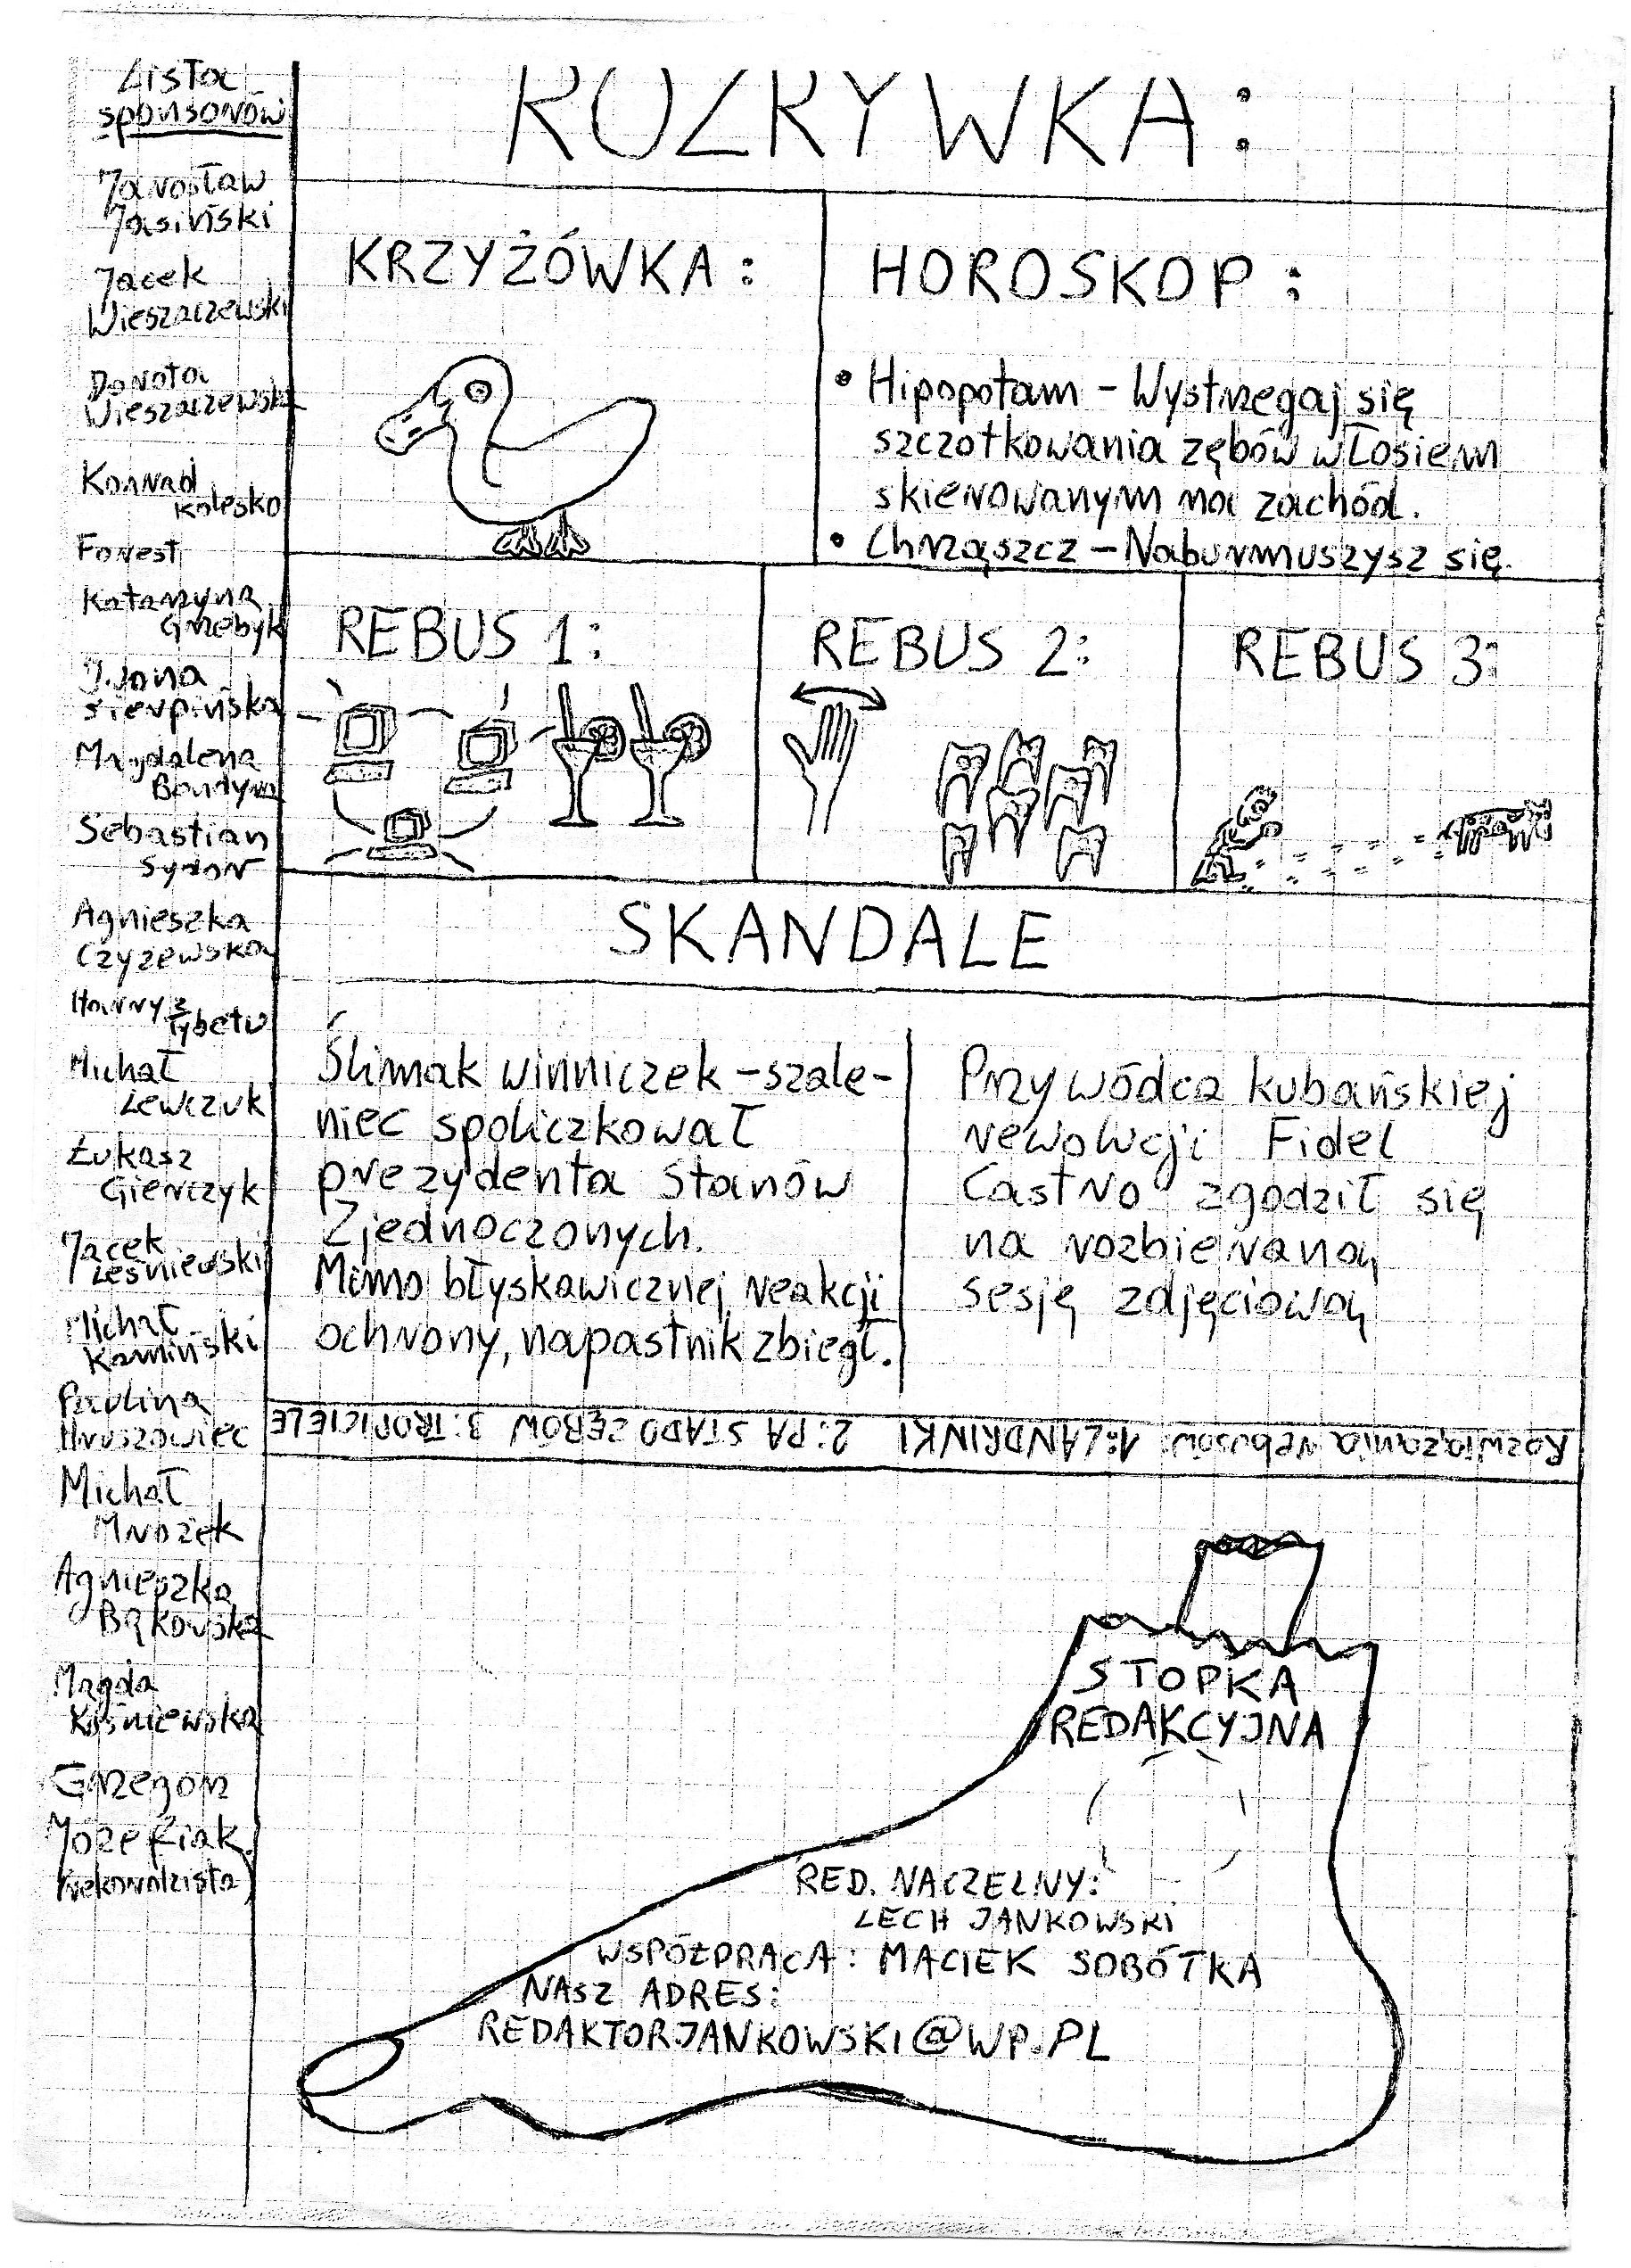 Lista
sponsorów
Jarosław
Jasiński
Jacek
Wieszaczewski
Dorota
Wieszaczewska
Konrad
Kolesko
Forest
Katarzyna
Grzebyk
Iwona
Sierpińska
Magdalena
Bondyra
Sebastian
Sydor
Agnieszka
Czyżewska
Harry z
Tybetu
Michał
Lewczuk
Łukasz
Gierczyk
Jacek
Leśniewski
Michał
Kamiński
Paulina
Hruszowiec
Michał
Mrożek
Agnieszka
Bąkowska
Magda
Kośniewska
Grzegorz
Józefiak
(rekordzista)
ROZRYWKA:
KRZYŻÓWKA:
HOROSKOP:
• Hipopotam – Wystrzegaj się
szczotkowania zębów włosiem
skierowanym na zachód.
• Chrząszcz – Naburmuszysz się.
REBUS 1:
REBUS 2:
REBUS 3:
SKANDALE
Ślimak winniczek – szale-
niec spoliczkował
prezydenta Stanów
Zjednoczonych.
Mimo błyskawicznej reakcji
ochrony, napastnik zbiegł.
Przywódca kubańskiej
rewolucji Fidel
Castro zgodził się
na rozbieraną
sesję zdjęciową
Rozwiązania rebusów: 1: LANDRINKI 2: PA STADO ZĘBÓW 3: TROPICIELE
STOPKA
REDAKCYJNA
RED. NACZELNY:
LECH JANKOWSKI
WSPÓŁPRACA: MACIEK SOBÓTKA
NASZ ADRES:
REDAKTORJANKOWSKI@WP.PL